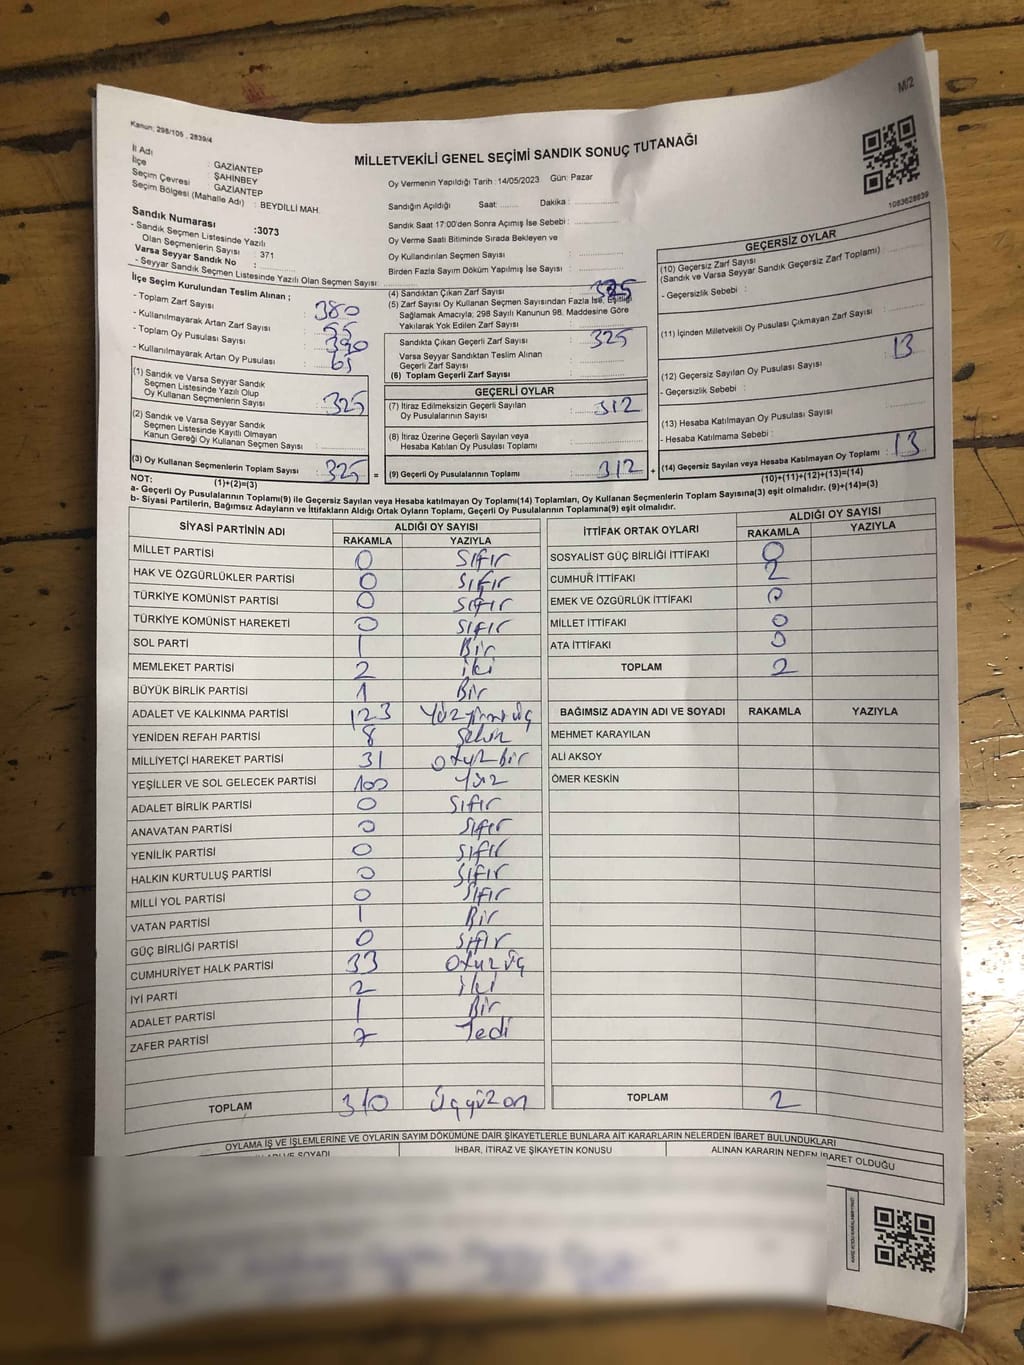 M/2
Kanun: 298/105 , 2839/4
MİLLETVEKİLİ GENEL SEÇİMİ SANDIK SONUÇ TUTANAĞI
İl Adı : GAZİANTEP
İlçe : ŞAHİNBEY
Seçim Çevresi : GAZİANTEP
Seçim Bölgesi (Mahalle Adı) : BEYDİLLİ MAH.
Oy Vermenin Yapıldığı Tarih : 14/05/2023 Gün: Pazar
Sandığın Açıldığı Saat: ........ Dakika : ..............
Sandık Saat 17:00'den Sonra Açımış İse Sebebi : ..............
Oy Verme Saati Bitiminde Sırada Bekleyen ve
Oy Kullandırılan Seçmen Sayısı : ..............
Birden Fazla Sayım Döküm Yapılmış İse Sayısı : ..............
1083628639
Sandık Numarası :3073
- Sandık Seçmen Listesinde Yazılı
Olan Seçmenlerin Sayısı : 371
Varsa Seyyar Sandık No : ..............
- Seyyar Sandık Seçmen Listesinde Yazılı Olan Seçmen Sayısı: ..............
İlçe Seçim Kurulundan Teslim Alınan ;
- Toplam Zarf Sayısı : 380
- Kullanılmayarak Artan Zarf Sayısı : 55
- Toplam Oy Pusulası Sayısı : 390
- Kullanılmayarak Artan Oy Pusulası : 65
(1) Sandık ve Varsa Seyyar Sandık
Seçmen Listesinde Yazılı Olup
Oy Kullanan Seçmenlerin Sayısı : 325
(2) Sandık ve Varsa Seyyar Sandık
Seçmen Listesinde Kayıtlı Olmayan
Kanun Gereği Oy Kullanan Seçmen Sayısı : ..............
(3) Oy Kullanan Seçmenlerin Toplam Sayısı : 325 =
(1)+(2)=(3)
(4) Sandıktan Çıkan Zarf Sayısı : 325
(5) Zarf Sayısı Oy Kullanan Seçmen Sayısından Fazla İse, Eşitliği
Sağlamak Amacıyla; 298 Sayılı Kanunun 98. Maddesine Göre
Yakılarak Yok Edilen Zarf Sayısı : ..............
Sandıkta Çıkan Geçerli Zarf Sayısı : 325
Varsa Seyyar Sandıktan Teslim Alınan
Geçerli Zarf Sayısı : ..............
(6) Toplam Geçerli Zarf Sayısı : ..............
GEÇERLİ OYLAR
(7) İtiraz Edilmeksizin Geçerli Sayılan
Oy Pusulalarının Sayısı : 312
(8) İtiraz Üzerine Geçerli Sayılan veya
Hesaba Katılan Oy Pusulası Toplamı : ..............
(9) Geçerli Oy Pusulalarının Toplamı : 312 +
GEÇERSİZ OYLAR
(10) Geçersiz Zarf Sayısı
(Sandık ve Varsa Seyyar Sandık Geçersiz Zarf Toplamı) : ..............
- Geçersizlik Sebebi :
(11) İçinden Milletvekili Oy Pusulası Çıkmayan Zarf Sayısı : ..............
(12) Geçersiz Sayılan Oy Pusulası Sayısı : 13
- Geçersizlik Sebebi :
(13) Hesaba Katılmayan Oy Pusulası Sayısı : ..............
- Hesaba Katılmama Sebebi :
(14) Geçersiz Sayılan veya Hesaba Katılmayan Oy Toplamı : 13
(10)+(11)+(12)+(13)=(14)
NOT:
a- Geçerli Oy Pusulalarının Toplamı(9) ile Geçersiz Sayılan veya Hesaba katılmayan Oy Toplamı(14) Toplamları, Oy Kullanan Seçmenlerin Toplam Sayısına(3) eşit olmalıdır. (9)+(14)=(3)
b- Siyasi Partilerin, Bağımsız Adayların ve İttifakların Aldığı Ortak Oyların Toplamı, Geçerli Oy Pusulalarının Toplamına(9) eşit olmalıdır.
SİYASİ PARTİNİN ADI ALDIĞI OY SAYISI
RAKAMLA YAZIYLA
MİLLET PARTİSİ 0 Sıfır
HAK VE ÖZGÜRLÜKLER PARTİSİ 0 Sıfır
TÜRKİYE KOMÜNİST PARTİSİ 0 Sıfır
TÜRKİYE KOMÜNİST HAREKETİ 0 Sıfır
SOL PARTİ 1 Bir
MEMLEKET PARTİSİ 2 iki
BÜYÜK BİRLİK PARTİSİ 1 Bir
ADALET VE KALKINMA PARTİSİ 123 Yüzyirmiüç
YENİDEN REFAH PARTİSİ 8 Sekiz
MİLLİYETÇİ HAREKET PARTİSİ 31 otuzbir
YEŞİLLER VE SOL GELECEK PARTİSİ 100 Yüz
ADALET BİRLİK PARTİSİ 0 Sıfır
ANAVATAN PARTİSİ 0 Sıfır
YENİLİK PARTİSİ 0 Sıfır
HALKIN KURTULUŞ PARTİSİ 0 Sıfır
MİLLİ YOL PARTİSİ 0 Sıfır
VATAN PARTİSİ 1 Bir
GÜÇ BİRLİĞİ PARTİSİ 0 Sıfır
CUMHURİYET HALK PARTİSİ 33 Otuzüç
İYİ PARTİ 2 iki
ADALET PARTİSİ 1 Bir
ZAFER PARTİSİ 7 Yedi
TOPLAM 310 Üçyüzon
İTTİFAK ORTAK OYLARI ALDIĞI OY SAYISI
RAKAMLA YAZIYLA
SOSYALİST GÜÇ BİRLİĞİ İTTİFAKI 0
CUMHUR İTTİFAKI 2
EMEK VE ÖZGÜRLÜK İTTİFAKI 0
MİLLET İTTİFAKI 0
ATA İTTİFAKI 0
TOPLAM 2
BAĞIMSIZ ADAYIN ADI VE SOYADI RAKAMLA YAZIYLA
MEHMET KARAYILAN
ALİ AKSOY
ÖMER KESKİN
TOPLAM 2
OYLAMA İŞ VE İŞLEMLERİNE VE OYLARIN SAYIM DÖKÜMÜNE DAİR ŞİKAYETLERLE BUNLARA AİT KARARLARIN NELERDEN İBARET BULUNDUKLARI
SOYADI İHBAR, İTİRAZ VE ŞİKAYETİN KONUSU ALINAN KARARIN NEDEN İBARET OLDUĞU